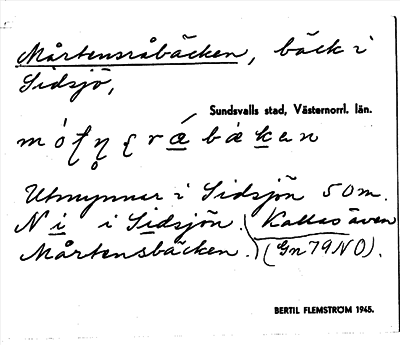 Mårtensråbäcken, bäck i
Sidsjö,
Sundsvalls stad, Västernorrl. län.
Utmynnar i Sidsjön 50 m.
N i i Sidsjön. (Kallas även
Mårtensbäcken.) (Gn 79 NO).
BERTIL FLEMSTRÖM 1945.